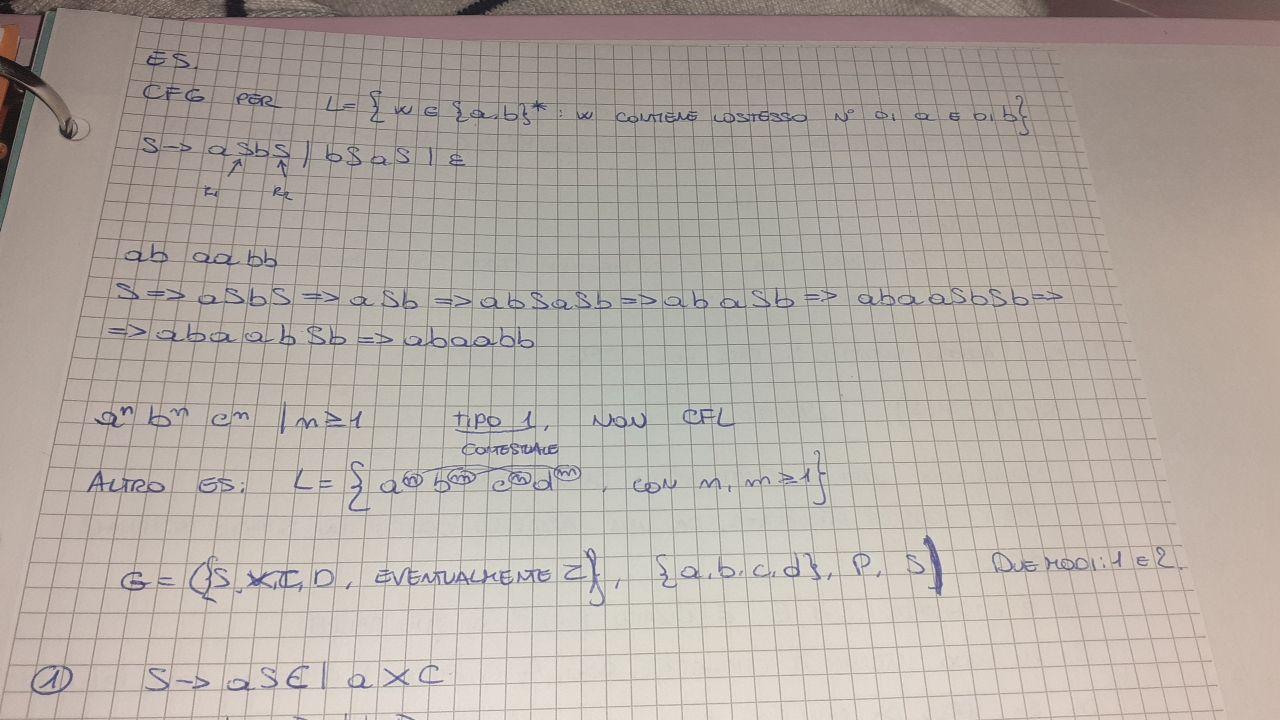 ES.
CFG PER L = { w ∈ {a,b}* : w CONTIENE LO STESSO N° DI a E DI b }
S → aSbS | bSaS | ε
R₂
ab aabb
S ⇒ aSbS ⇒ aSb ⇒ abSaSb ⇒ abaSb ⇒ abaaSbSb ⇒
⇒ abaabSb ⇒ abaabb
aⁿ bⁿ cⁿ | n ≥ 1 TIPO 1, NON CFL
CONTESTUALE
ALTRO ES: L = { aⁿ bᵐ cⁿ dᵐ, CON n, m ≥ 1 }
G = ({S, X, C, D, EVENTUALMENTE Z}, {a, b, c, d}, P, S) DUE MODI: 1 E 2.
① S → aSC | aXC